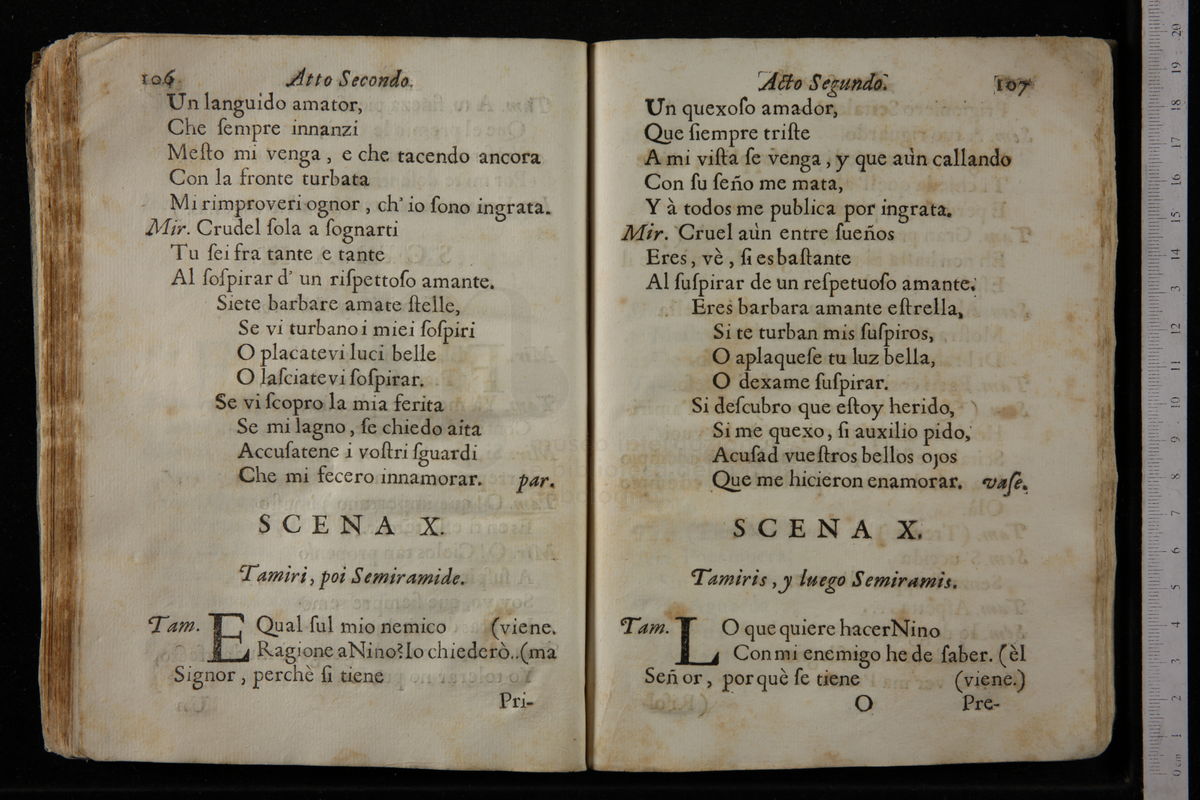 106 Atto Secondo.
Un languido amator,
Che ſempre innanzi
Meſto mi venga, e che tacendo ancora
Con la fronte turbata
Mi rimproveri ognor, ch' io ſono ingrata.
Mir. Crudel ſola a ſognarti
Tu ſei fra tante e tante
Al ſoſpirar d' un riſpettoſo amante.
Siete barbare amate ſtelle,
Se vi turbano i miei ſoſpiri
O placatevi luci belle
O laſciatevi ſoſpirar.
Se vi ſcopro la mia ferita
Se mi lagno, ſe chiedo aita
Accuſatene i voſtri ſguardi
Che mi fecero innamorar. par.
SCENA X.
Tamiri, poi Semiramide.
Tam. E Qual ſul mio nemico (viene.
Ragione a Nino? Io chiederò..(ma
Signor, perchè ſi tiene
Pri-
Acto Segundo. 107
Un quexoſo amador,
Que ſiempre triſte
A mi viſta ſe venga, y que aùn callando
Con ſu ſeño me mata,
Y à todos me publica por ingrata.
Mir. Cruel aùn entre ſueños
Eres, vè, ſi es baſtante
Al ſuſpirar de un reſpetuoſo amante.
Eres barbara amante eſtrella,
Si te turban mis ſuſpiros,
O aplaqueſe tu luz bella,
O dexame ſuſpirar.
Si deſcubro que eſtoy herido,
Si me quexo, ſi auxilio pido,
Acuſad vueſtros bellos ojos
Que me hicieron enamorar. vaſe.
SCENA X.
Tamiris, y luego Semiramis.
Tam. LO que quiere hacer Nino
Con mi enemigo he de ſaber. (èl
Señor, por què ſe tiene (viene.)
O Pre-